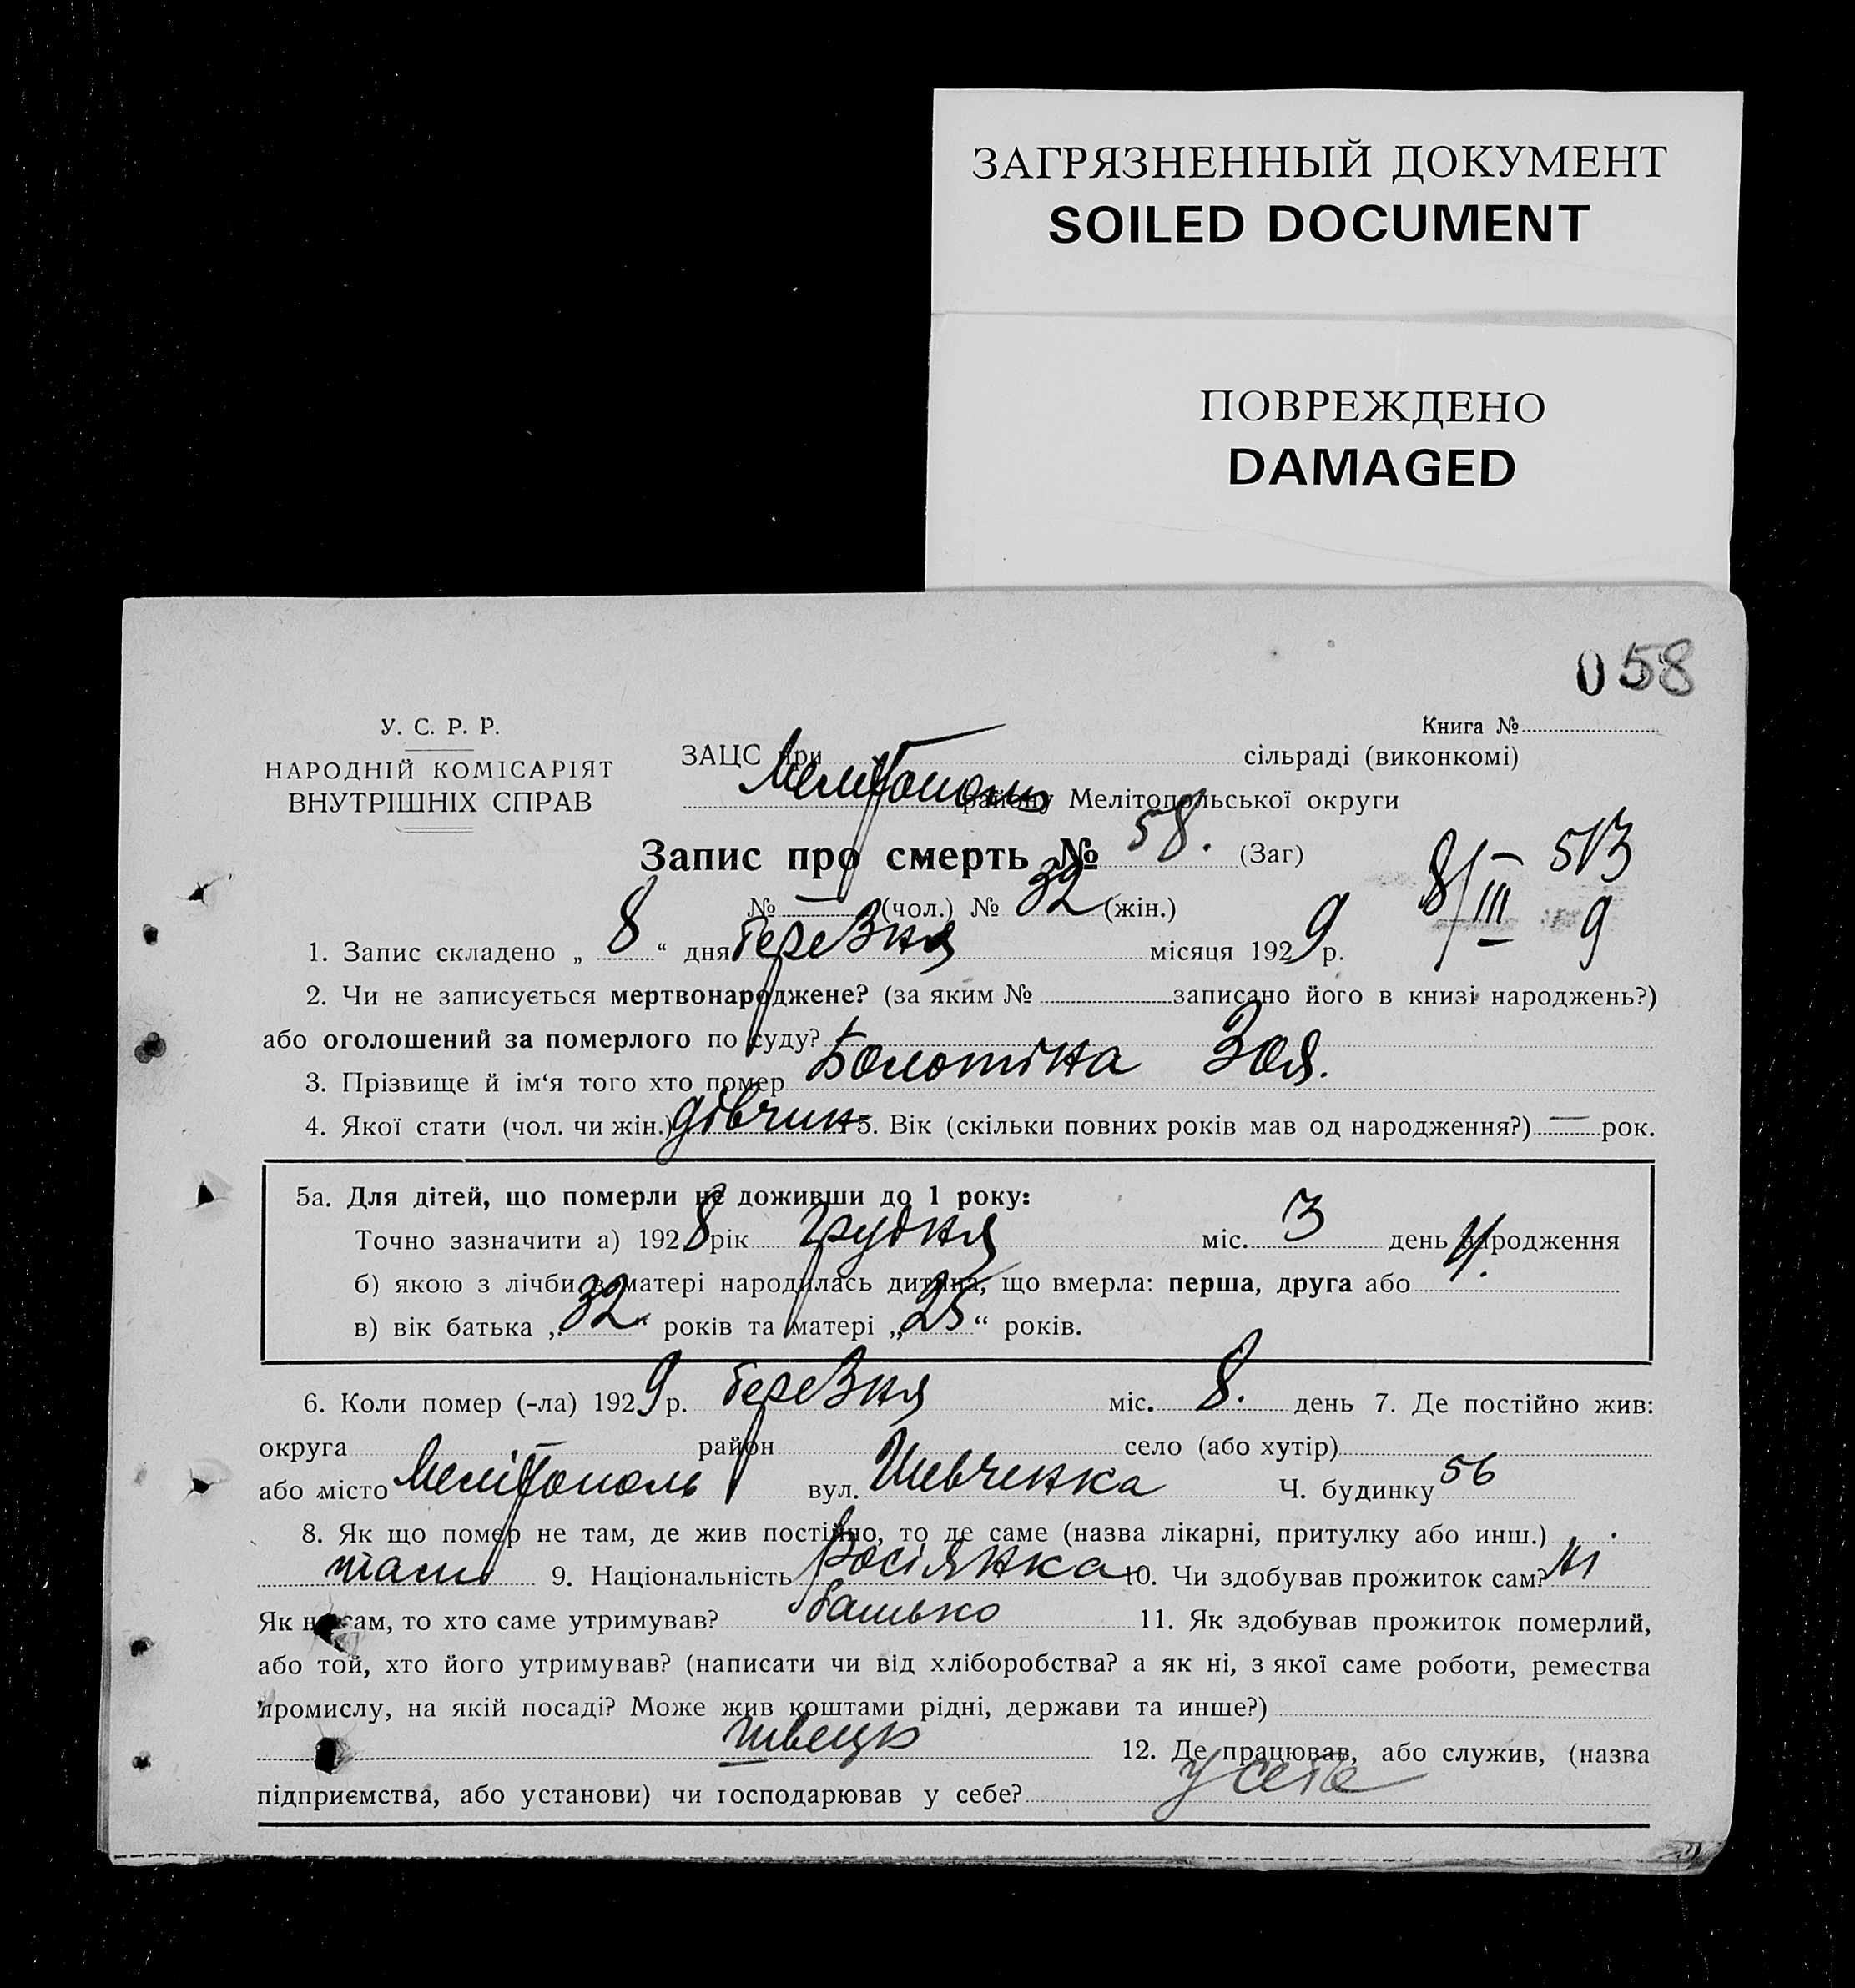 ЗАГРЯЗНЕННЫЙ ДОКУМЕНТ
SOILED DOCUMENT
ПОВРЕЖДЕНО
DAMAGED
058
У. С. Р. Р.
НАРОДНІЙ КОМІСАРІЯТ
ВНУТРІШНІХ СПРАВ
Книга №
ЗАЦС при Мелітополь сільраді (виконкомі)
району Мелітопольської округи
Запис про смерть № 58. (Заг)
8/III 9 513
№ — (чол.) № 32 (жін.)
1. Запис складено „ 8 “ дня березня місяця 1929 р.
2. Чи не записується мертвонароджене? (за яким № записано його в книзі народжень?)
або оголошений за померлого по суду?
3. Прізвище й ім‘я того хто помер Болотіна Зоя.
4. Якої стати (чол. чи жін.) дівчин 5. Вік (скільки повних років мав од народження?) — рок.
5а. Для дітей, що померли не доживши до 1 року:
Точно зазначити а) 1928 рік грудня міс. 3 день народження
б) якою з лічби в матері народилась дитина, що вмерла: перша, друга або 4.
в) вік батька „ 32 “ років та матері „ 25 “ років.
6. Коли помер (-ла) 1929 р. березня міс. 8. день 7. Де постійно жив:
округа район село (або хутір)
або місто Мелітополь вул. Шевченка Ч. будинку 56
8. Як що помер не там, де жив постійно, то де саме (назва лікарні, притулку або инш.)
там 9. Національність Росіянка 10. Чи здобував прожиток сам? ні
Як не сам, то хто саме утримував? батько 11. Як здобував прожиток померлий,
або той, хто його утримував? (написати чи від хліборобства? а як ні, з якої саме роботи, ремества
промислу, на якій посаді? Може жив коштами рідні, держави та инше?)
швець 12. Де працював, або служив, (назва
підприємства, або установи) чи господарював у себе? у себе